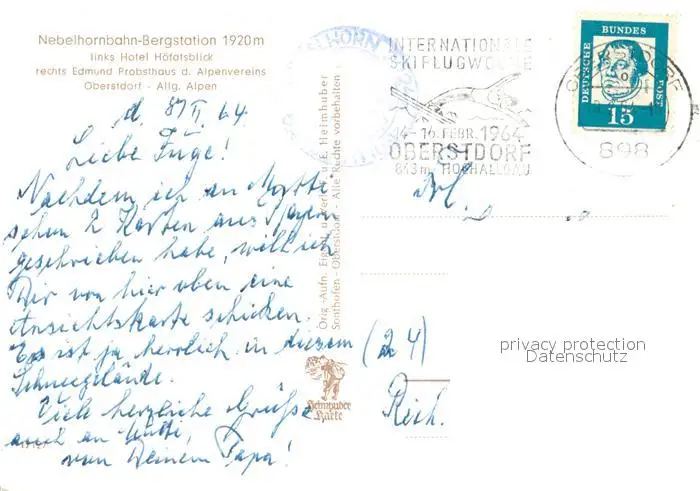 Nebelhornbahn-Bergstation 1920m
links Hotel Höfatsblick
rechts Edmund Probsthaus d. Alpenvereins
Oberstdorf - Allg. Alpen
d. 8/II. 64
Liebe Inge!
Nachdem ich an
schon 2 Karten aus
geschrieben habe, will ich
Dir von hier oben eine
Ansichtskarte schicken.
Es ist ja herrlich in diesem
Schneegelände.
Viele herzliche Grüße
auch an Mutti,
von Deinem Papa!
Orig.-Aufn. Eigent. u. Verlag E. Heimhuber
Sonthofen - Oberstdorf - Alle Rechte vorbehalten
Heimhuber
Karte
NEBELHORN
INTERNATIONALE
SKIFLUGWOCHE
14-16. FEBR. 1964
OBERSTDORF
843m HOCHALLGÄU
DEUTSCHE BUNDES POST
15
OBERSTDORF
898
Frl.
(24)
Reich.
privacy protection
Datenschutz